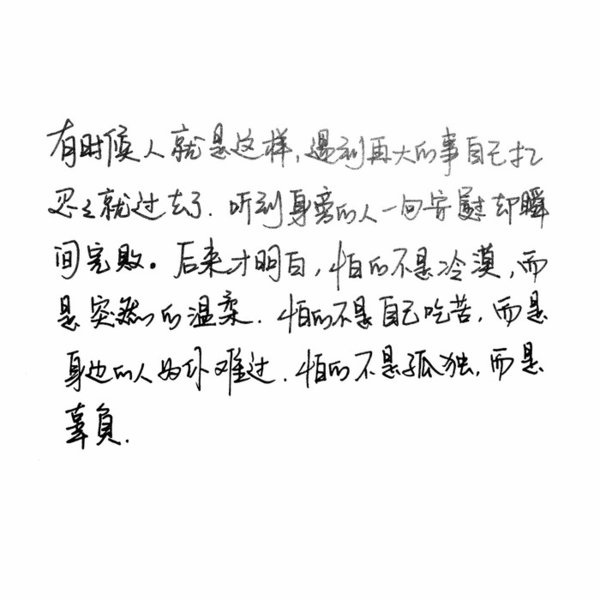 有时候人就是这样,遇到再大的事自己扛
忍忍就过去了.听到身旁的人一句安慰却瞬
间完败。后来才明白,怕的不是冷漠,而
是突然的温柔.怕的不是自己吃苦,而是
身边的人为你难过.怕的不是孤独,而是
辜负.